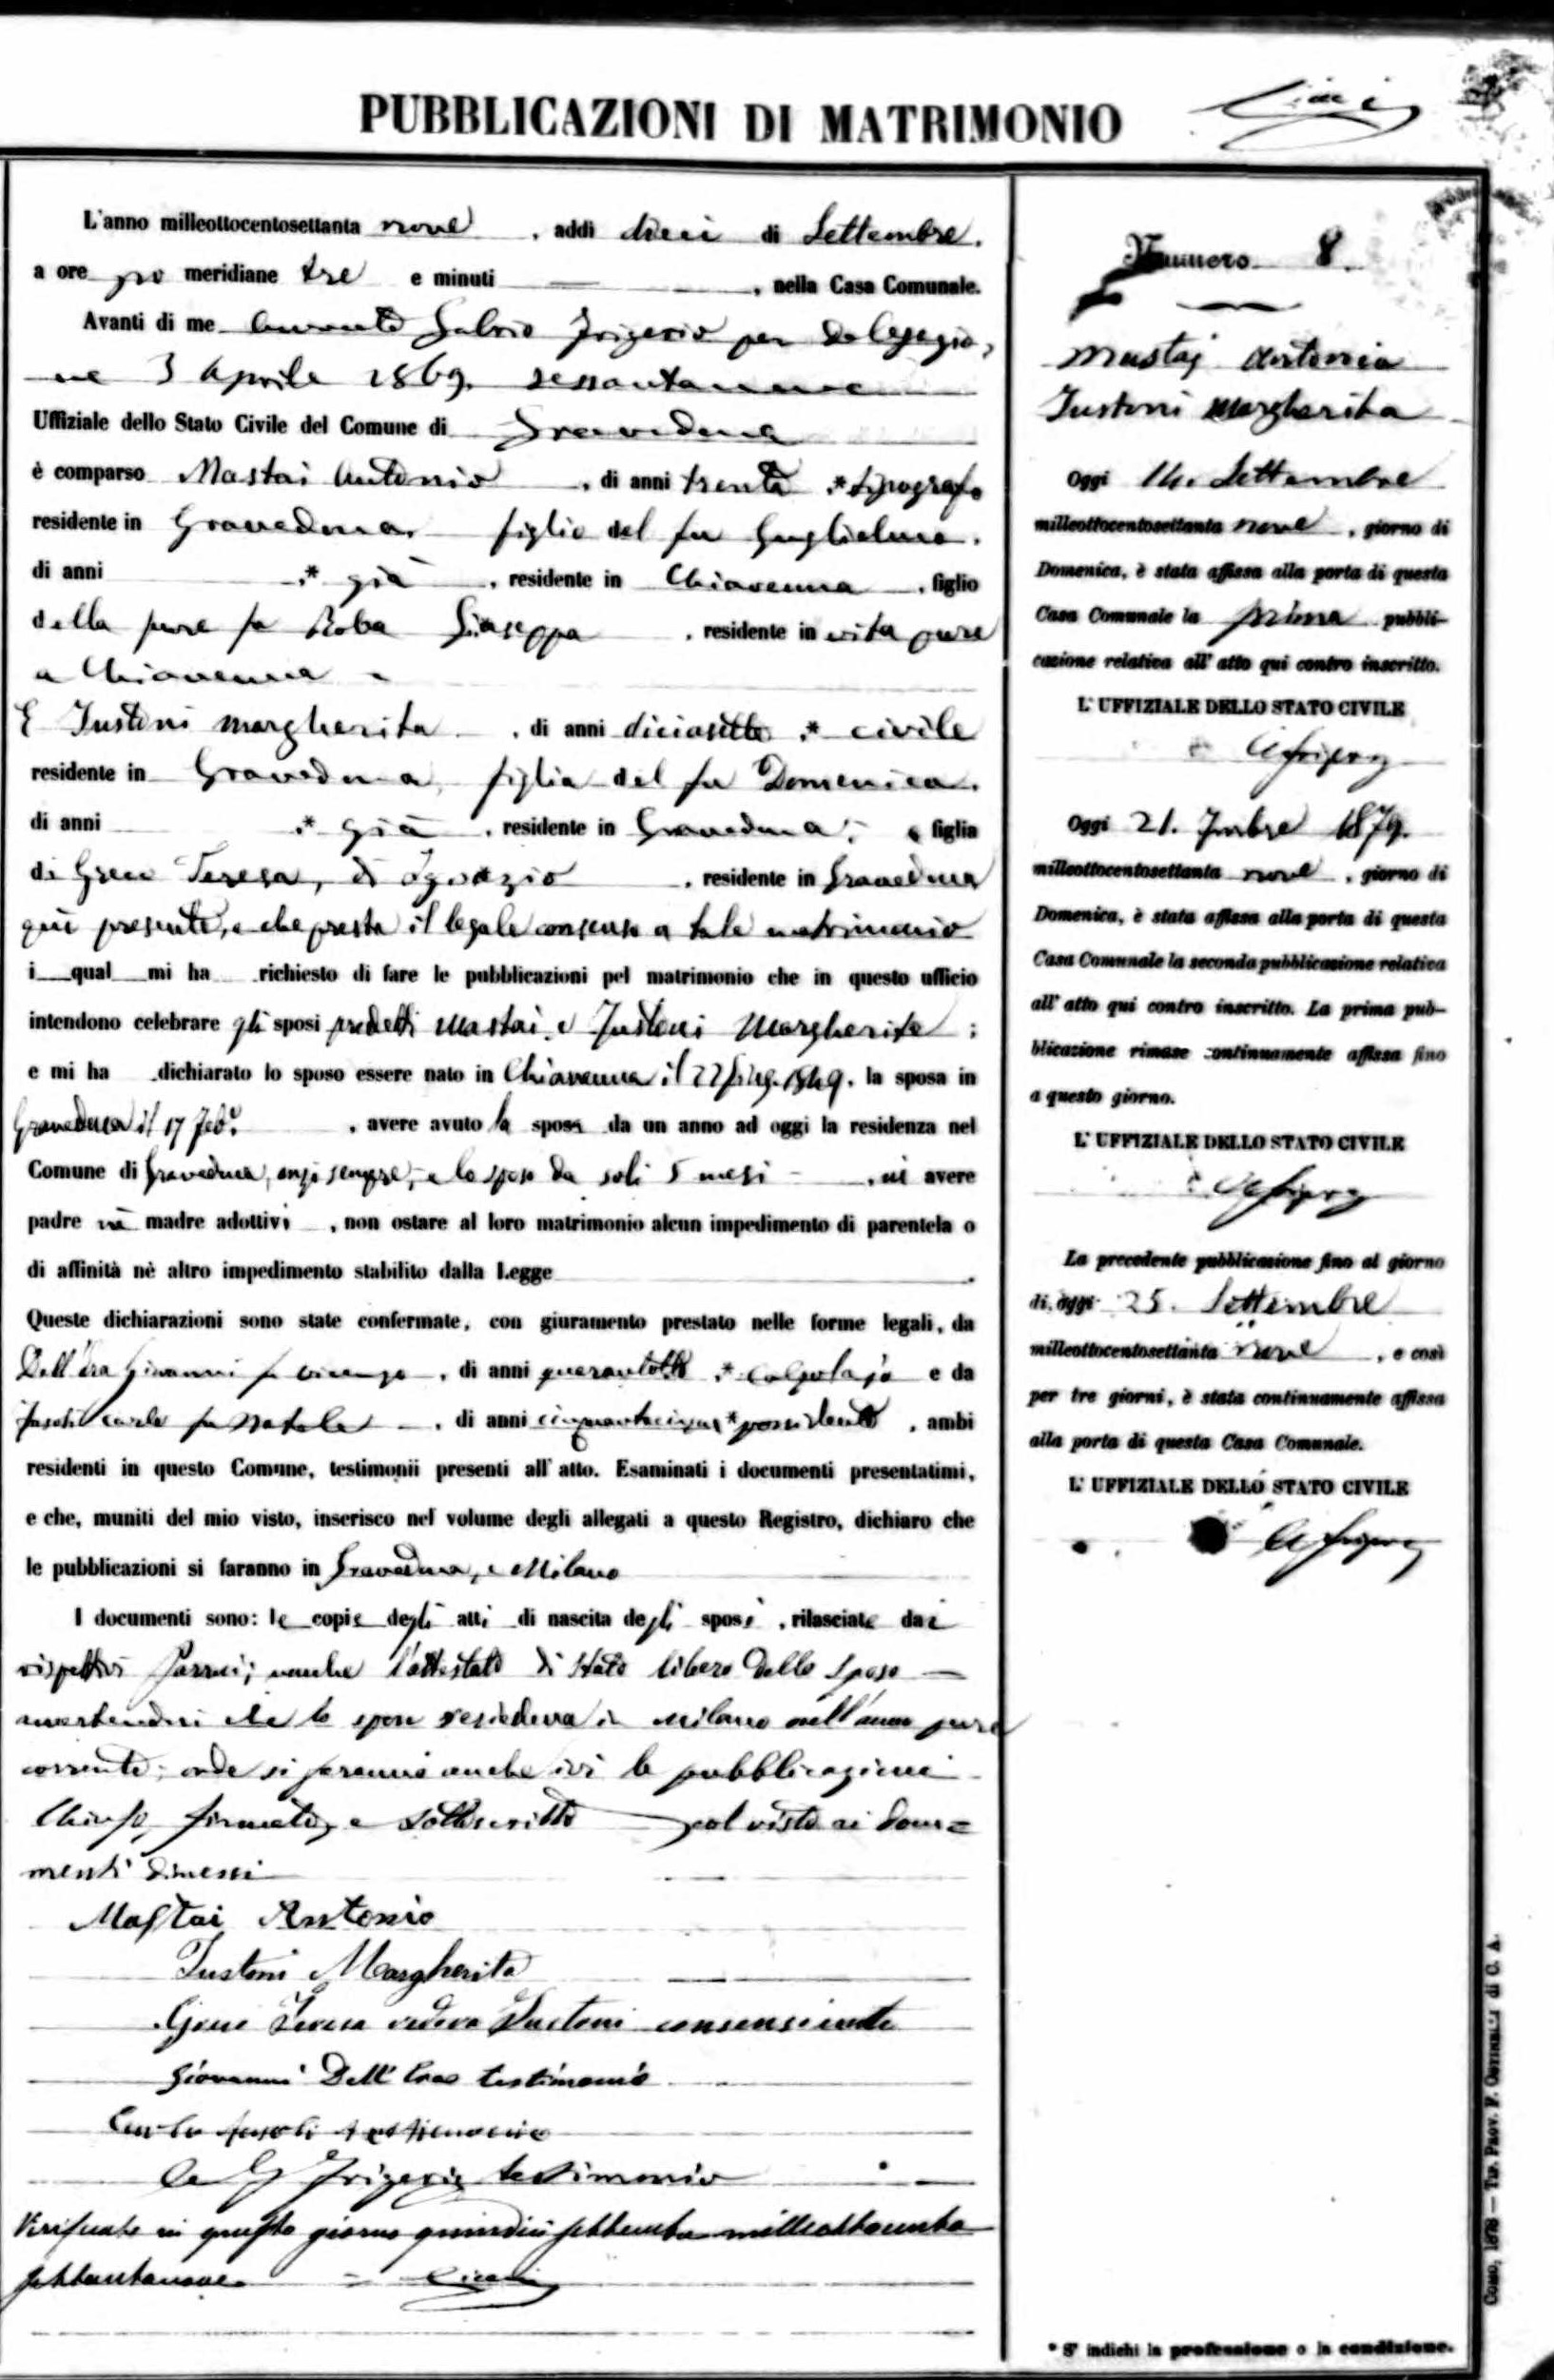 PUBBLICAZIONI DI MATRIMONIO
L'anno milleottocentosettanta nove, addì dieci di Settembre.
a ore po meridiane tre e minuti, nella Casa Comunale.
Avanti di me Fulvio Frigerio per delegazio,
ne 3 Aprile 1869. sessantanove
Uffiziale dello Stato Civile del Comune di Gravedona
è comparso Mastai Antonio, di anni trenta .* tipografo
residente in Gravedona, figlio del fu Guglielmo.
di anni .* già, residente in Chiavenna, figlio
della pure fu Roba Giuseppa, residente in vita pure
a Chiavenna
E Justoni Margherita, di anni diciasette .* civile
residente in Gravedona, figlia del fu Domenico.
di anni .* già, residente in Gravedona; figlia
di Greco Teresa, di Ignazio, residente in Gravedona
quì presente, e che presta il legale consenso a tale matrimonio
i qual mi ha richiesto di fare le pubblicazioni pel matrimonio che in questo ufficio
intendono celebrare gli sposi predetti Mastai e Justoni Margherita;
e mi ha dichiarato lo sposo essere nato in Chiavenna il 22 1849, la sposa in
Gravedona il 17 Feb.°, avere avuto la sposa da un anno ad oggi la residenza nel
Comune di Gravedona, anzi sempre, e lo sposo da soli 5 mesi, nè avere
padre nè madre adottivi, non ostare al loro matrimonio alcun impedimento di parentela o
di affinità nè altro impedimento stabilito dalla Legge.
Queste dichiarazioni sono state confermate, con giuramento prestato nelle forme legali, da
Dell'Era Giovanni fu Vicenzo, di anni quarantotto .* calzolajo e da
Fasoli Carlo fu Natale, di anni cinquantacinque * possidente, ambi
residenti in questo Comune, testimonii presenti all'atto. Esaminati i documenti presentatimi,
e che, muniti del mio visto, inserisco nel volume degli allegati a questo Registro, dichiaro che
le pubblicazioni si faranno in Gravedona, e Milano
I documenti sono: le copie degli atti di nascita degli sposi, rilasciate dai
rispettivi Parroci; nonchè l'attestato di stato libero dello sposo
avvertendosi che lo sposo resiedeva in Milano nell'anno pure
corrente; onde si faranno anche ivi le pubblicazioni
Chiuso, firmato, e sottoscritto col visto ai docu=
menti dimessi
Mastai Antonio
Justoni Margherita
Greco Teresa vedova Justoni consensciente
Giovanni Dell'Era testimonio
Carlo Fasoli testimonio
Frigerio testimonio
Verificato in questo giorno quindici settembre milleottocento
settantanove
Numero 8.
Mastaj Antonio
Justoni Margherita
Oggi 14. Settembre
milleottocentosettanta nove, giorno di
Domenica, è stata affissa alla porta di questa
Casa Comunale la prima pubbli-
cazione relativa all'atto qui contro inscritto.
L'UFFIZIALE DELLO STATO CIVILE
Oggi 21. 7mbre 1879.
milleottocentosettanta nove, giorno di
Domenica, è stata affissa alla porta di questa
Casa Comunale la seconda pubblicazione relativa
all'atto qui contro inscritto. La prima pub-
blicazione rimase continuamente affissa fino
a questo giorno.
L'UFFIZIALE DELLO STATO CIVILE
La precedente pubblicazione fino al giorno
di oggi 25. Settembre
milleottocentosettanta nove, e così
per tre giorni, è stata continuamente affissa
alla porta di questa Casa Comunale.
L'UFFIZIALE DELLO STATO CIVILE
* S'indichi la professione o la condizione.
Como, 1878 — Tip. Prov. F. Ostinelli di C. A.